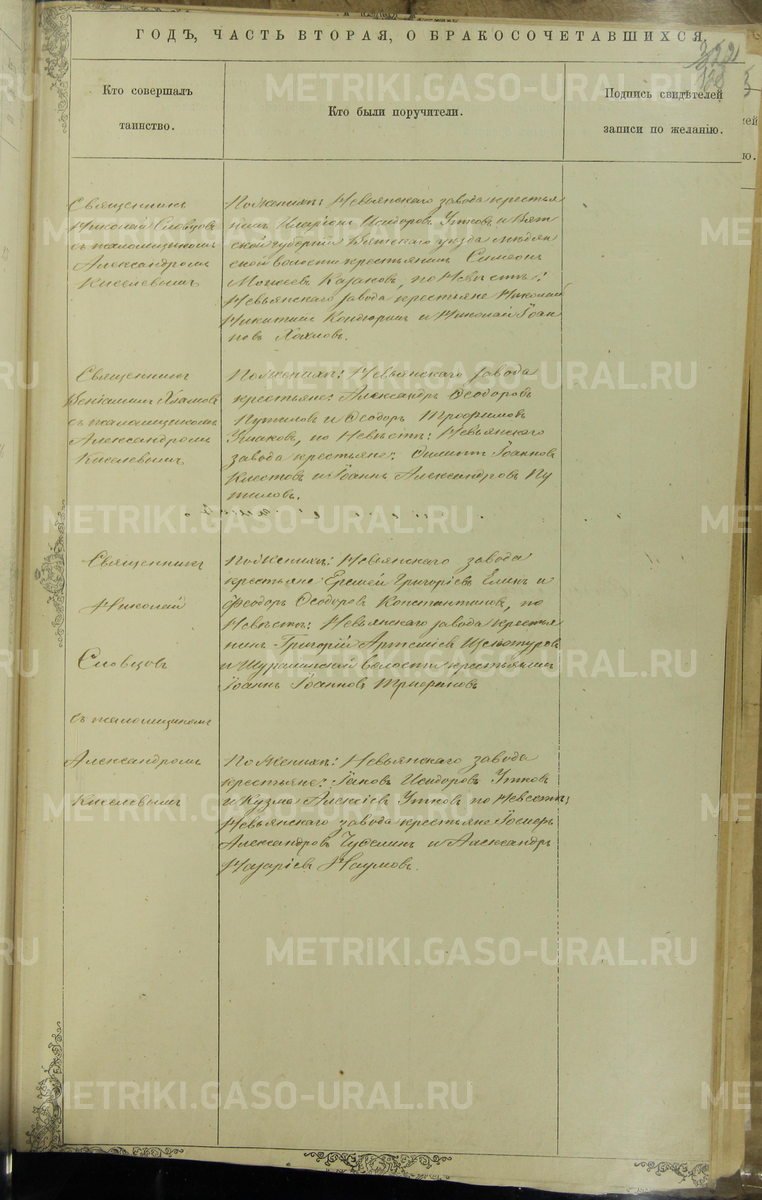 ГОДЪ, ЧАСТЬ ВТОРАЯ, О БРАКОСОЧЕТАВШИХСЯ,
Кто совершалъ
таинство.
Кто были поручители.
Подпись свидѣтелей
записи по желанію.
Священникъ
Николай Словцовъ
съ псаломщикомъ
Александромъ
Киселевымъ
По женихѣ: Невьянскаго завода крестья
нинъ Иларіонъ Исидоровъ Утковъ и Вят
ской губерніи Вятскаго уѣзда
ской волости крестьянинъ Симеонъ
Моисеевъ Казаковъ, по Невѣстѣ:
Невьянскаго завода крестьяне Николай
Никитинъ Кондюринъ и Николай Іоан
новъ Хохловъ.
Священникъ
Веніаминъ Хламовъ
съ псаломщикомъ
Александромъ
Киселевымъ
По женихѣ: Невьянскаго завода
крестьяне: Александръ Ѳеодоровъ
Путиловъ и Ѳеодоръ Трофимовъ
Ушаковъ, по Невѣстѣ: Невьянскаго
завода крестьяне: Филиппъ Іоанновъ
Клестовъ и Іоаннъ Александровъ Пу
тиловъ.
Священникъ
Николай
Словцовъ
съ псаломщикомъ
Александромъ
Киселевымъ
По женихѣ: Невьянскаго завода
крестьяне Еремей Григоріевъ Елинъ и
Ѳеодоръ Ѳеодоровъ Константиновъ, по
Невѣстѣ: Невьянскаго завода крестья
нинъ Григорій Артеміевъ
и Шуралинской волости крестьянинъ
Іоаннъ Іоанновъ
По женихѣ: Невьянскаго завода
крестьяне: Іаковъ Исидоровъ Утковъ
и Кузма Алексіевъ Утковъ по Невестѣ;
Невьянскаго завода крестьяне Іосифъ
Александровъ и Александръ
Назаріевъ Наумовъ.
METRIKI.GASO-URAL.RU
METRIKI.GASO-URAL.RU
METRIKI.GASO-URAL.RU
METRIKI.GASO-URAL.RU
METRIKI.GASO-URAL.RU
METRIKI.GASO-URAL.RU
METRIKI.GASO-URAL.RU
METRIKI.GASO-URAL.RU